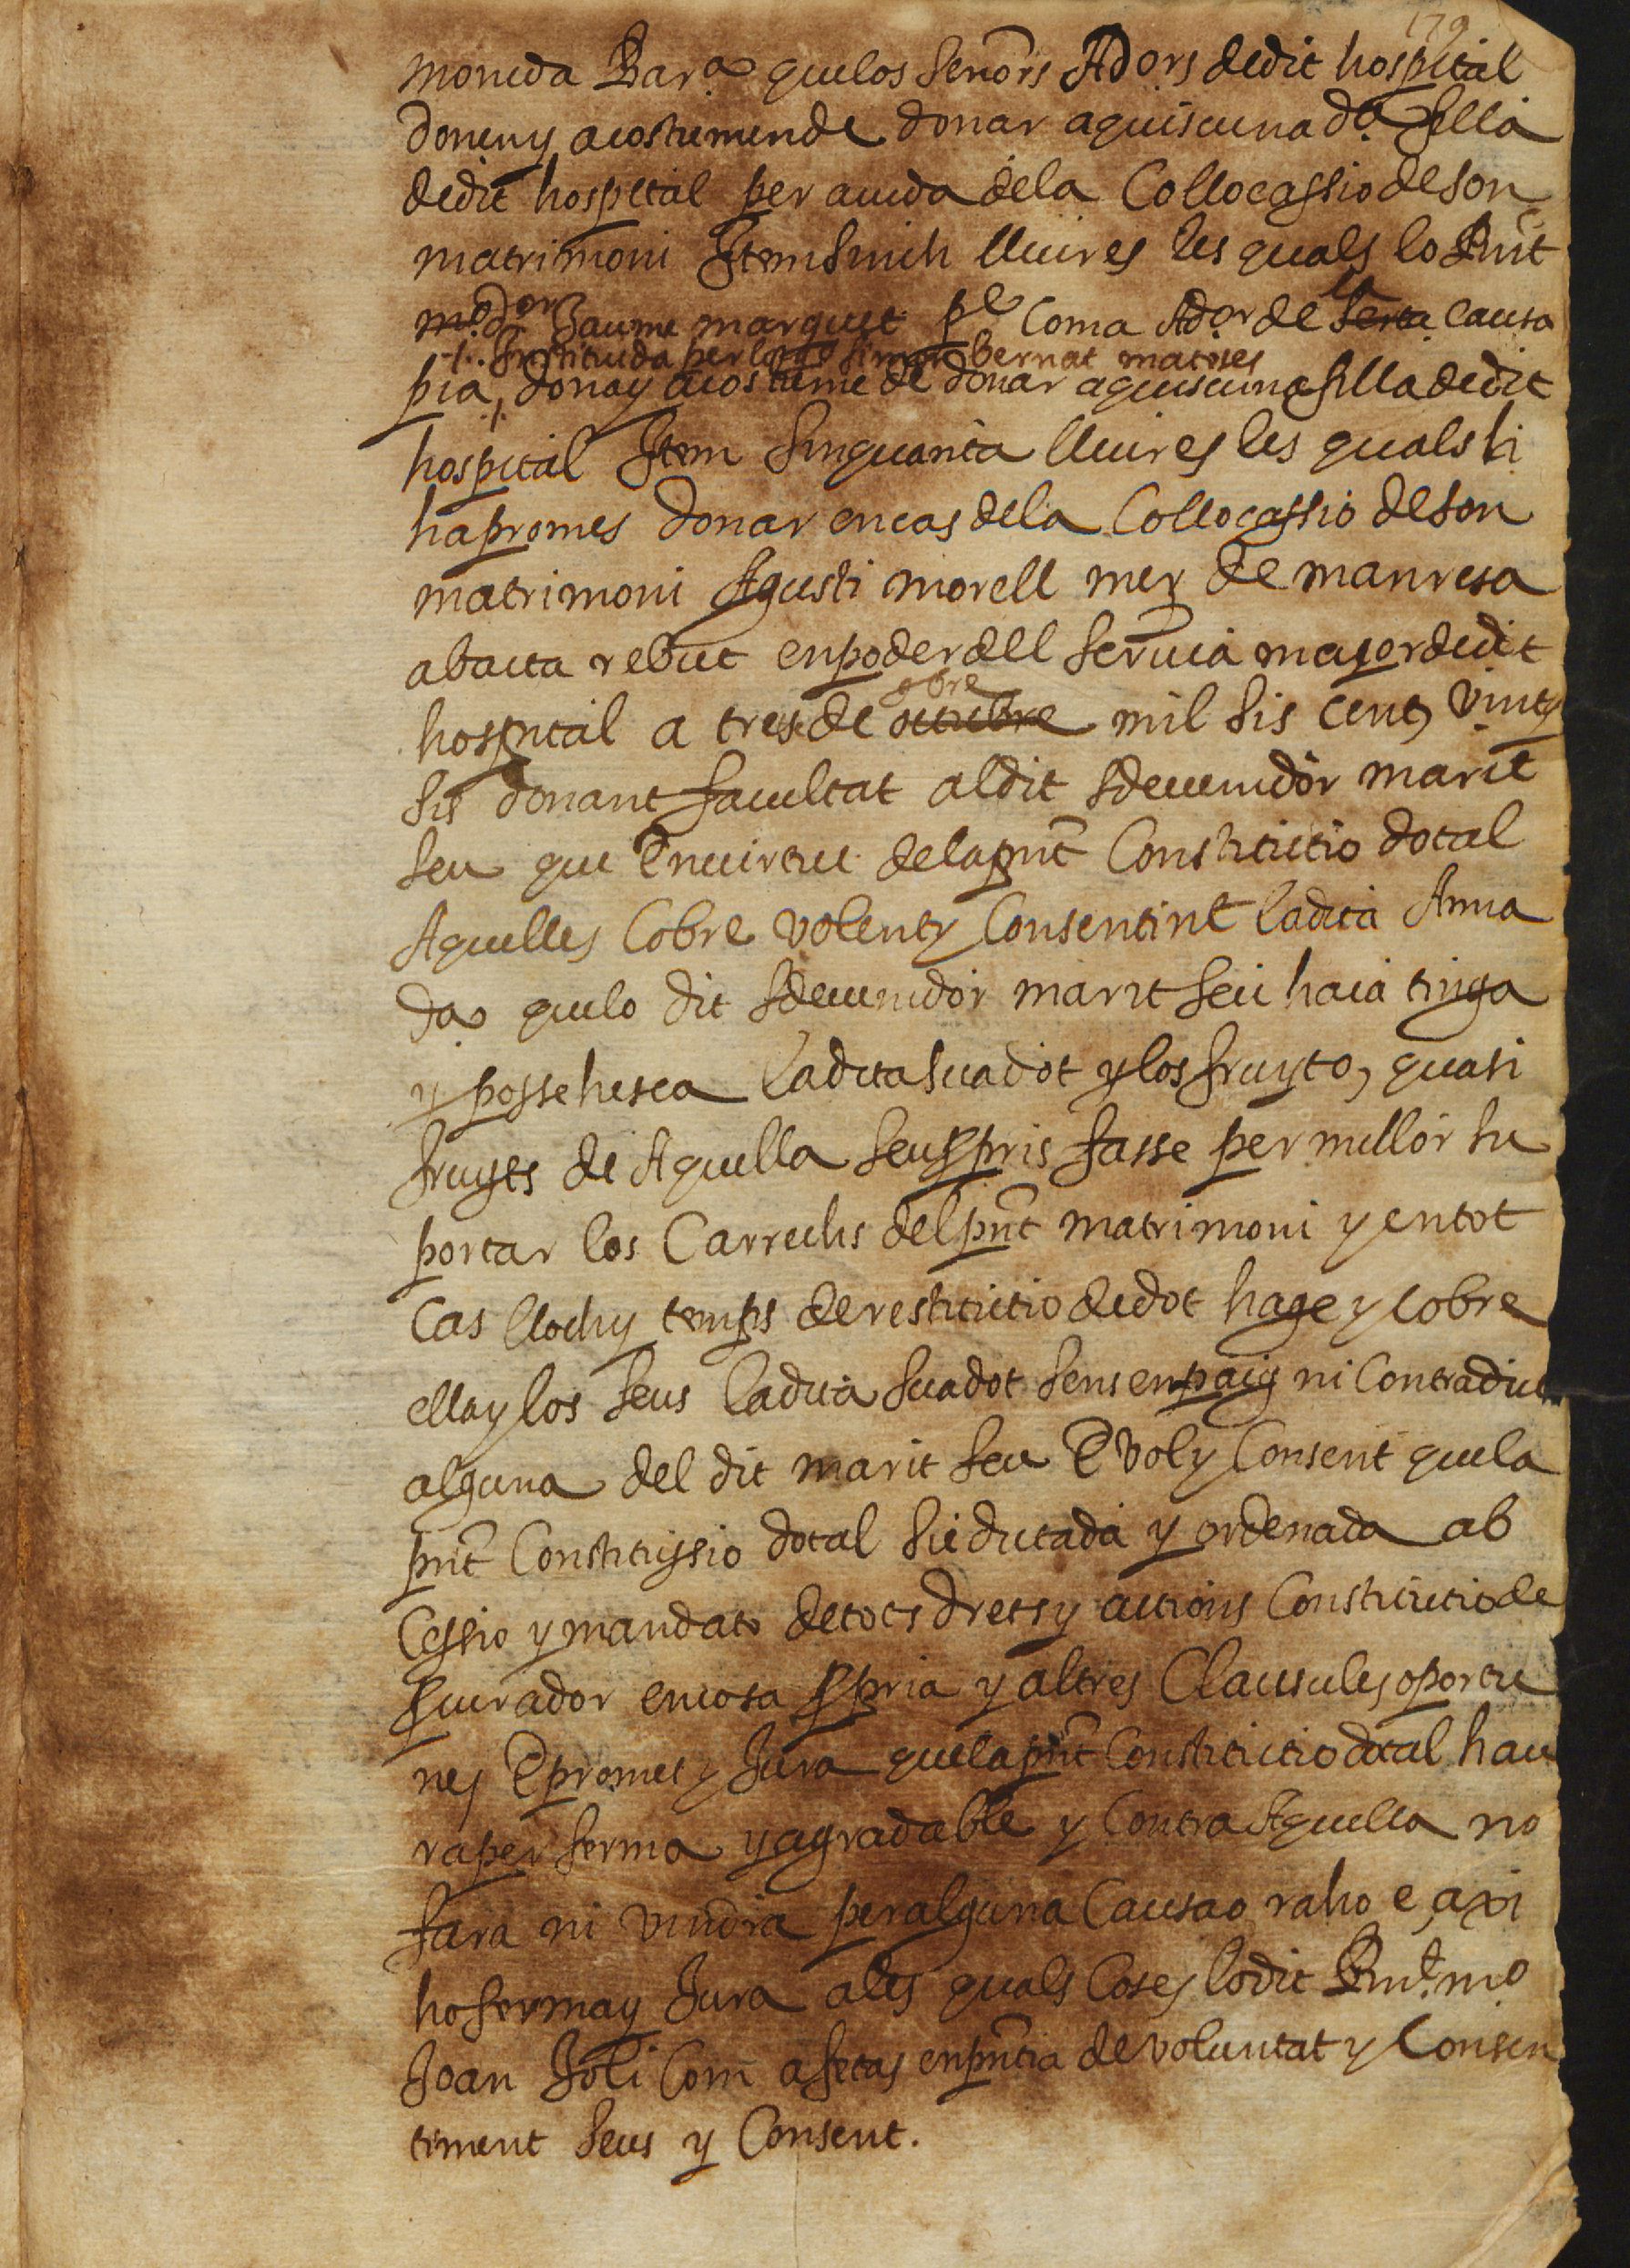 179
moneda Bar.ª quelos Senõrs Adors dedit hospital
doneny acostumende donar aquiscuna d.ª filla
dedit hospital per aiuda dela Collocassio deson
matrimoni Item Sinch lliures les quals lo Rnt
m.º dor Jaume marquet p.e Coma Ador de la causa
Instituida per lo Bernat matises
pia, donay acostume de donar aquiscuna filla dedit
hospital Item Sinquanta lliures les quals li
hapromes donar encas dela Collocassio deson
matrimoni Agusti morell mer de manresa
abacta rebut enpoderdell Scriua maior dedit
hospital a tres de obre mil sis cents vint y
sis donant facultat aldit sdeuenidor marit
seu que Enuirtut delapnt Constitutio dotal
Aquelles Cobre volent y Consentint ladita Anna
d.ª quelo dit sdeuenidor marit seu haia tinga
y possehesca ladita suadot y los fruyts, quasi
fruyts de Aquella seus ppris fasse per millor su
portar los Carrechs delpnt matrimoni y entot
Cas llochy temps derestitutio dedot hage y cobre
ellay los seus ladita suadot sens enpaig ni Contradict
alguna del dit marit seu E voly Consent quela
pnt Constitussio dotal sie dictada y ordenada ab
Cessio y mandato detots dretsy actions Constitutio de
pcurador encosa ppria y altres Clausules oportu
nes E promet y Jura quelapnt Constitutio dotal hau
raper ferma yagradable y Contra Aquella no
fara ni vindra peralguna Causao raho e axi
hofermay Jura ales quals Coses lodit Rnt. m.º
Joan Joli Com afetas enpntia de voluntat y Consen
timent seus y Consent.